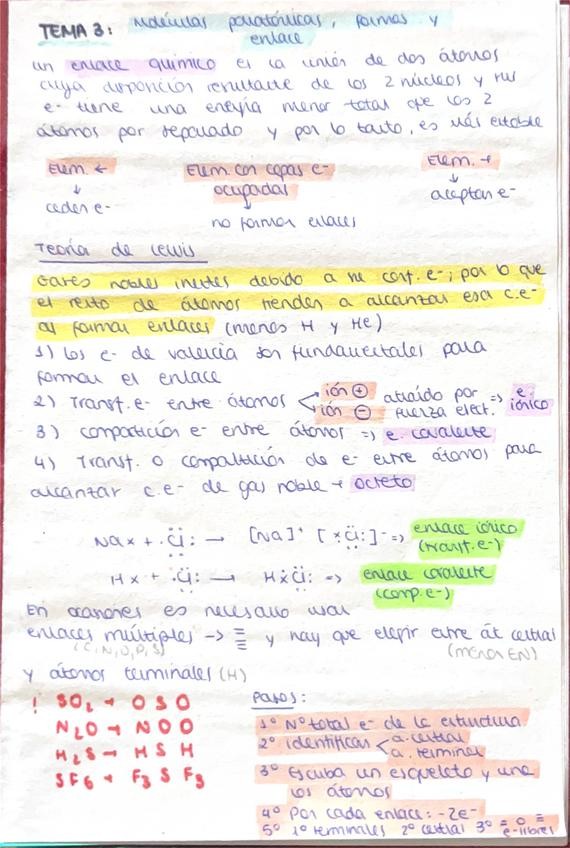 TEMA 3: Moléculas poliatómicas, formas y
enlace
un enlace químico es la unión de dos átomos
cuya disposición resultante de los 2 núcleos y sus
e- tiene una energía menor total que los 2
átomos por separado y por lo tanto, es más estable
Elem. ← Elem. con capas e- Elem. →
ocupadas
↓ ↓ ↓
ceden e- no forman enlaces aceptan e-
Teoría de Lewis
Gases nobles inertes debido a su conf. e-; por lo que
el resto de átomos tienden a alcanzar esa c.e-
al formar enlaces (menos H y He)
1) los e- de valencia son fundamentales para
formar el enlace
2) Transf. e- entre átomos ión ⊕ ión ⊖ atraído por fuerza elect. => e. iónico
3) compartición e- entre átomos => e. covalente
4) Transf. o compartición de e- entre átomos para
alcanzar c.e- de gas noble → octeto
Na x + ·Cl: → [Na]+ [xCl:]- => enlace iónico
(transf. e-)
H x + ·Cl: → HxCl: => enlace covalente
(comp. e-)
En ocasiones es necesario usar
enlaces múltiples -> = ≡ y hay que elegir entre át. central
(C, N, O, P, S) (menor EN)
y átomos terminales (H)
! SO2 → O S O
N2O → N O O
H2S → H S H
SF6 → F3 S F3
Pasos:
1º Nº total e- de la estructura
2º identificas < a. central
a. terminal
3º Escriba un esqueleto y una
los átomos
4º Por cada enlace: -2e-
5º 1º terminales 2º central 3º = o ≡
e- libres